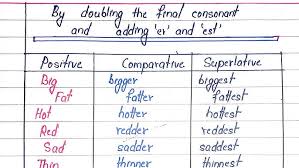 By doubling the final consonant
and adding 'er' and 'est'
Positive Comparative Superlative
Big bigger biggest
Fat fatter fattest
Hot hotter hottest
Red redder reddest
Sad sadder saddest
Thin thinner thinnest